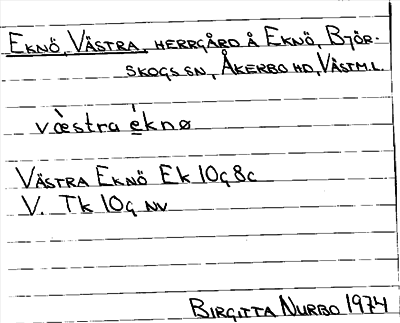 EKNÖ, VÄSTRA, HERRGÅRD Å EKNÖ, BJÖR-
SKOGS SN, ÅKERBO HD, VÄSTM.L.
væ̀stra é̱knø
VÄSTRA EKNÖ Ek 10G 8c
V. Tk 10G NV
BIRGITTA NURBO 1974